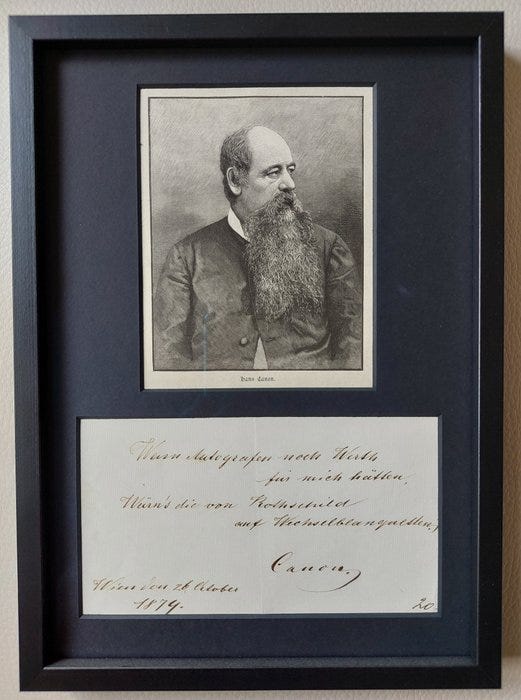 Hans Canon.
Wenn Autografen noch Werth
für mich hätten,
Wärn's die von Rothschild
auf Wechselblanquetten;
Canon.
Wien den 26 October
1879.
20.